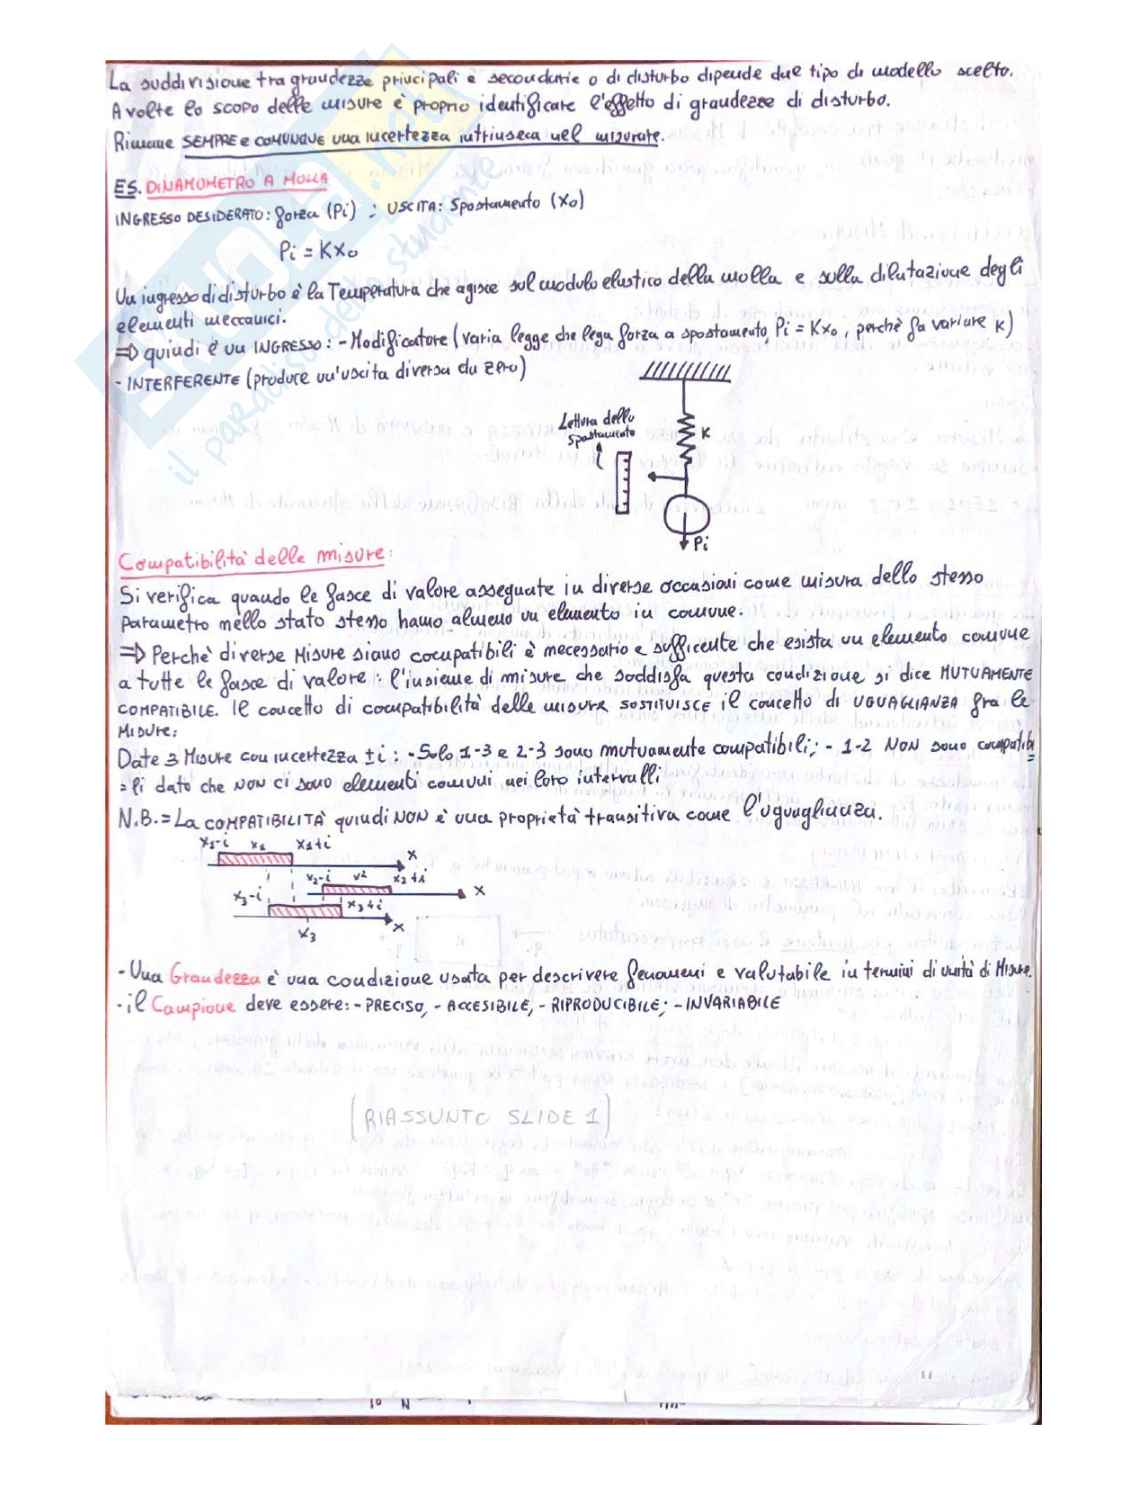 La suddivisione tra grandezze principali e secondarie o di disturbo dipende due tipo di modello scelto.
A volte lo scopo delle misure è proprio identificare l'effetto di grandezze di disturbo.
Rimane SEMPRE e COMUNQUE una incertezza intrinseca nel misurare.
ES. DINAMOMETRO A MOLLA
INGRESSO DESIDERATO: forza (Pi) ; USCITA: Spostamento (Xo)
Pi = KXo
Un ingresso di disturbo è la Temperatura che agisce sul modulo elastico della molla e sulla dilatazione degli
elementi meccanici.
=> quindi è un INGRESSO: - Modificatore (varia legge che lega forza a spostamento, Pi = KXo, perchè fa variare K)
- INTERFERENTE (produce un'uscita diversa da zero)
Lettura dello
spostamento
K
Pi
Compatibilità delle misure:
Si verifica quando le fasce di valore assegnate in diverse occasioni come misura dello stesso
Parametro nello stato stesso hanno almeno un elemento in comune.
=> Perchè diverse Misure siano compatibili è necessario e sufficente che esista un elemento comune
a tutte le fasce di valore: l'insieme di misure che soddisfa questa condizione si dice MUTUAMENTE
COMPATIBILE. Il concetto di compatibilità delle misura SOSTITUISCE il concetto di UGUAGLIANZA fra le
Misure:
Date 3 Misure con incertezza ± i : - Solo 1-3 e 2-3 sono mutuamente compatibili; - 1-2 NON sono compatibi
=li dato che NON ci sono elementi comuni nei loro intervalli
N.B. = La COMPATIBILITÀ quindi NON è una proprietà transitiva come l'uguaglianza.
X1-i X1 X1+i
X
X2-i X2+i
X
X3-i X3+i
X
X3
- Una Grandezza è una condizione usata per descrivere fenomeni e valutabile in termini di unità di Misure.
- il Campione deve essere: - PRECISO, - ACCESIBILE, - RIPRODUCIBILE; - INVARIABILE
(RIASSUNTO SLIDE 1)
il paradiso dello studente